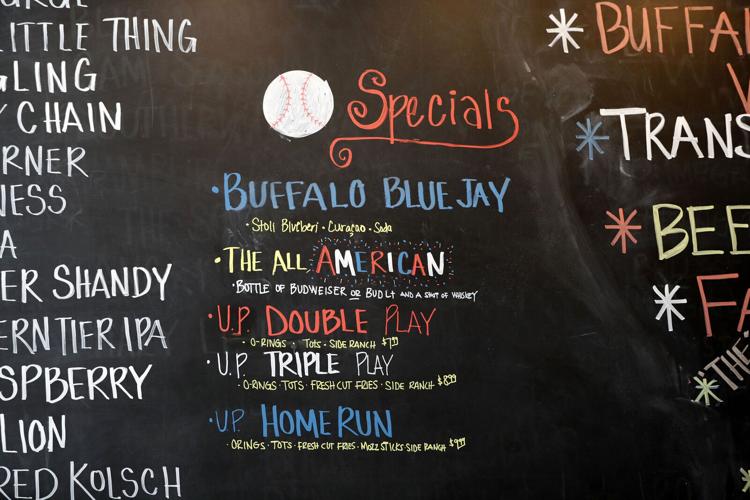 LITTLE THING
LING
CHAIN
RNER
NESS
A
ER SHANDY
ERN TIER IPA
SPBERRY
LION
RED KOLSCH
Specials
• BUFFALO BLUE JAY
• Stoli Blueberi • Curaçao • Soda
• THE ALL AMERICAN
• BOTTLE OF BUDWEISER OR BUD LT AND A SHOT OF WHISKEY
• U.P. DOUBLE PLAY
• O-RINGS • TOTS • SIDE RANCH
• U.P. TRIPLE PLAY
• O-RINGS • TOTS • FRESH CUT FRIES • SIDE RANCH $8.99
• U.P. HOME RUN
ORINGS • TOTS • FRESH CUT FRIES • MOZZ STICKS SIDE RANCH $9.99
* BUFFA
* TRANS
* BEE
* FA
* THE